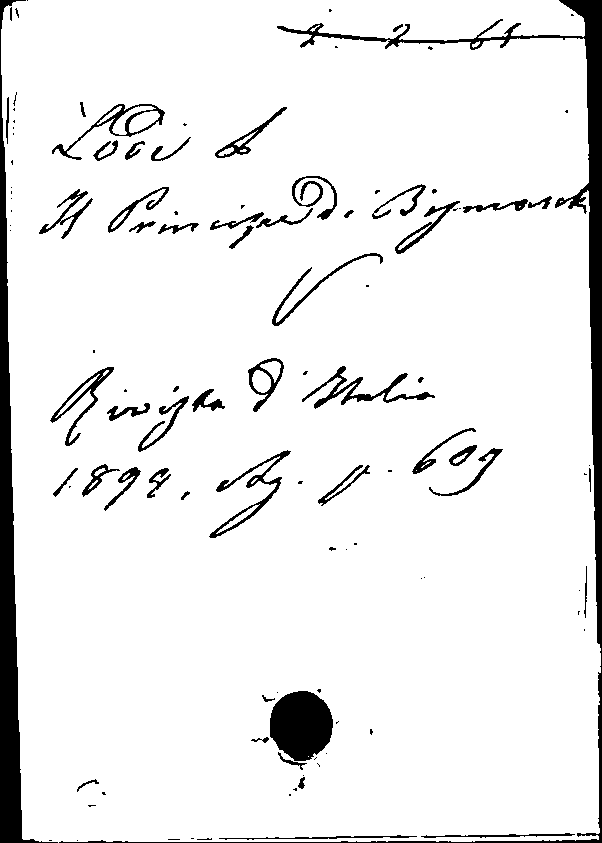 2. 2. 65
Lodi L
Il Principe di Bismarck
V.
Rivista d'Italia
1898, Ag. p. 609